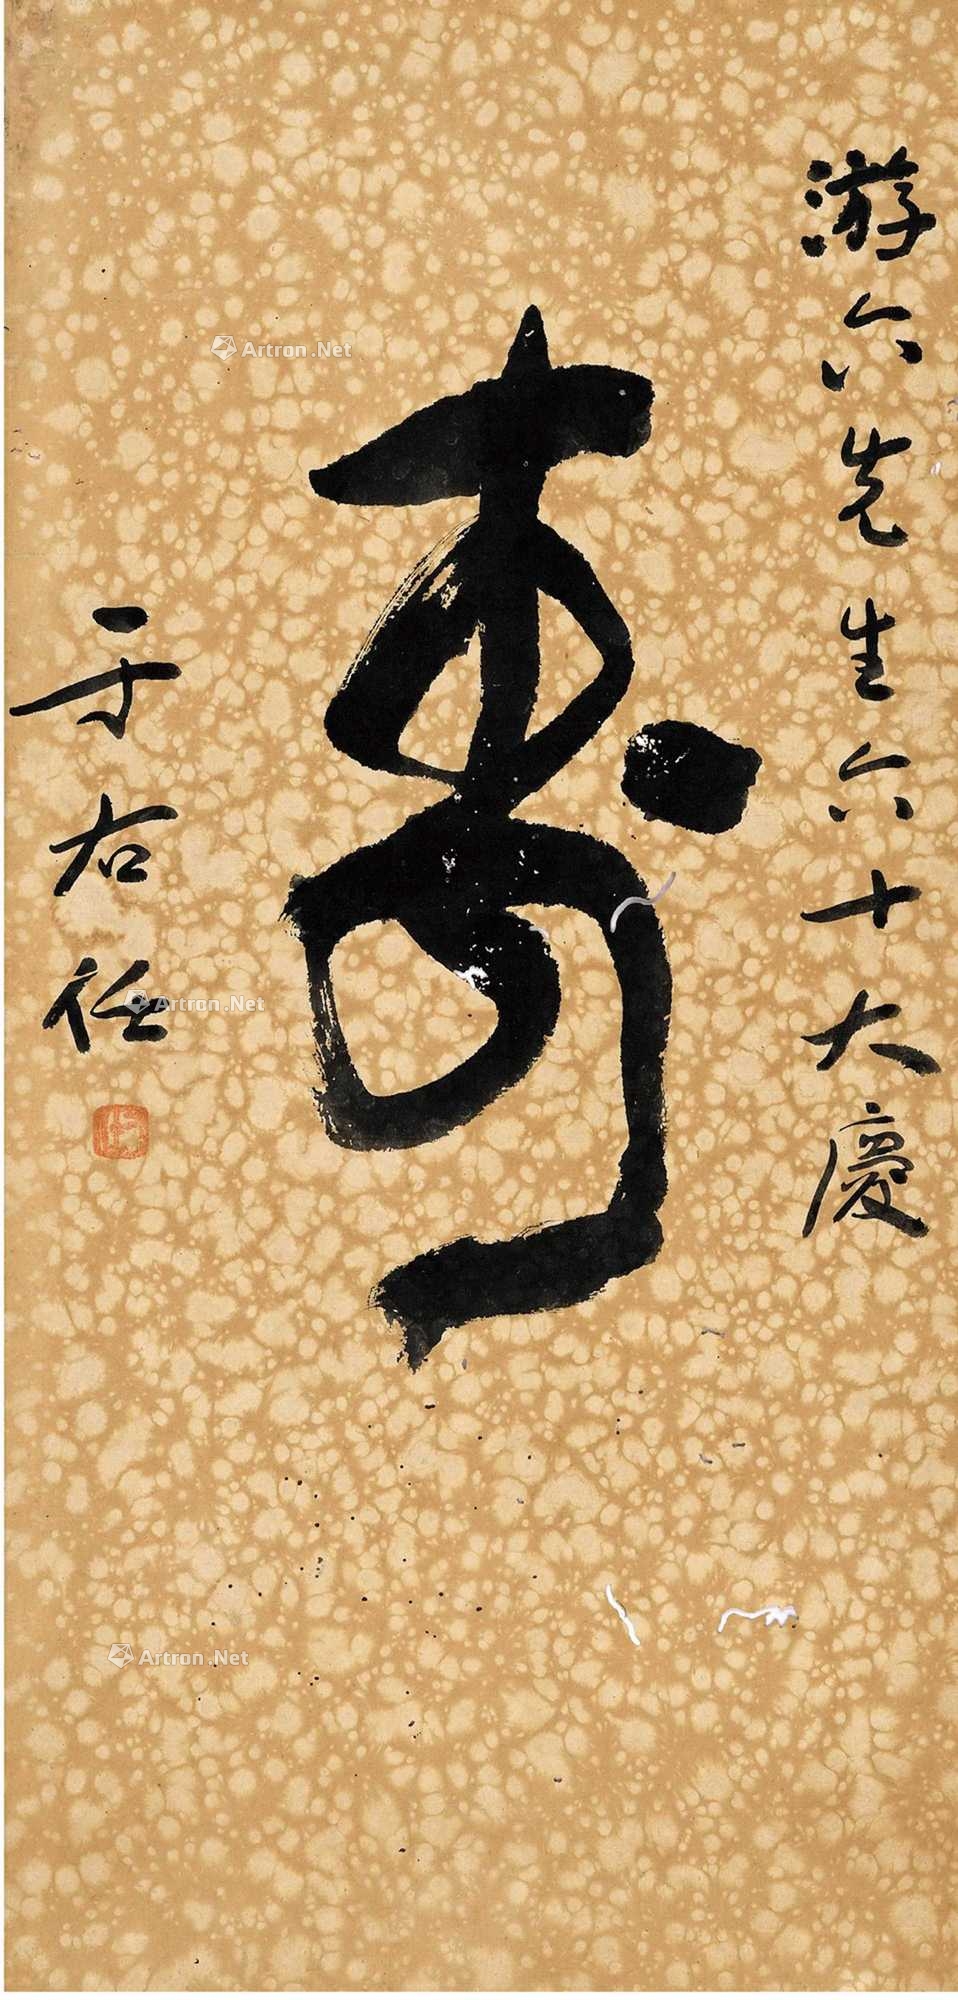 游六先生六十大慶
壽
于右任
Artron.Net
Artron.Net
Artron.Net